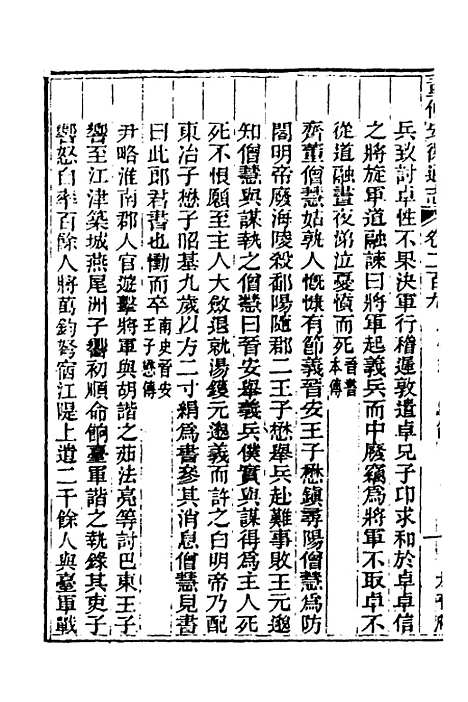 重修安徽通志 卷二百九
兵致討卓性不果決軍行稽遲敦遣卓兄子卬求和於卓卓信
之將旋軍道融諫曰將軍起義兵而中廢竊為將軍不取卓不
從道融晝夜涕泣憂憤而死晉書本傳
齊董僧慧姑孰人慨慷有節義晉安王子懋鎮尋陽僧慧為防
閤明帝廢海陵殺鄱陽隨郡二王子懋舉兵赴難事敗王元邈
知僧慧與謀執之僧慧曰晉安舉義兵僕實與謀得為主人死
死不恨願至主人大斂退就湯鑊元邈義而許之白明帝乃配
東冶子懋子昭基九歲以方二寸絹為書參其消息僧慧見書
曰此郎君書也慟而卒南史晉安王子懋傳
尹略淮南郡人官遊擊將軍與胡諧之茹法亮等討巴東王子
響至江津築城燕尾洲子響初順命餉臺軍諧之執錄其吏子
響怒自率百餘人將萬鈞弩宿江隄上道二千餘人與臺軍戰